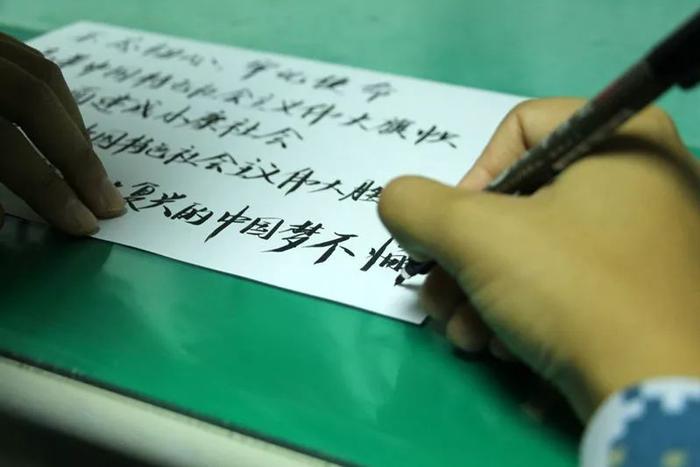 不忘初心、牢记使命
举中国特色社会主义伟大旗帜
面建成小康社会
中国特色社会主义伟大胜
复兴的中国梦不